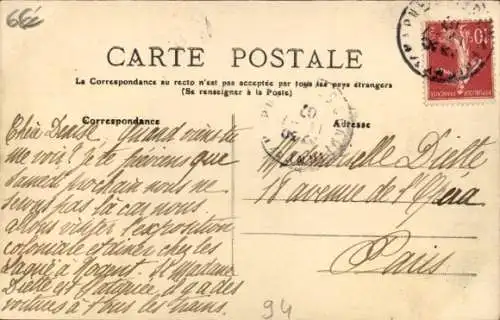 66é
CARTE POSTALE
La Correspondance au recto n'est pas acceptée par tous les pays étrangers
(Se renseigner à la Poste)
Correspondance
Adresse
10
RÉPUBLIQUE FRANÇAISE
Chère Denise, Quand viens tu
me voir? je te préviens que
samedi prochain nous ne
serons pas là car nous
allons visiter l'exposition
coloniale et dîner chez les
à Nogent. Si Madame
Diette est fatiguée il y a des
voitures à tous les trains.
Mademoiselle Diette
18 avenue de l'Opéra
Paris
94